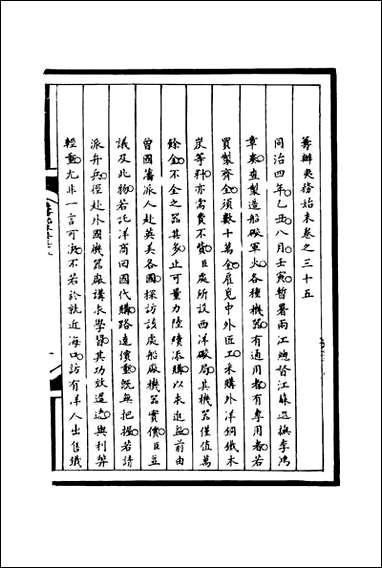 籌辦夷務始末卷之三十五
同治四年乙丑八月壬寅暫署兩江總督江蘇巡撫李鴻
章奏竊製造船礮軍火各種機器有通用者有專用者若
買製齊全須數十萬金雇覓中外匠工采購外洋銅鐵木
炭等料亦需費不貲臣處所設西洋礮局其機器僅值萬
餘金不全之器甚多止可量力陸續添購以求進益前由
曾國藩派人赴英美各國探訪該處船廠機器實價臣並
議及此物若託洋商回國代購路遠價重既無把握若請
派弁兵徑赴外國機器廠講求學習其功效遲速與利弊
輕重尤非一言可決不若於就近海口訪有洋人出售鐵